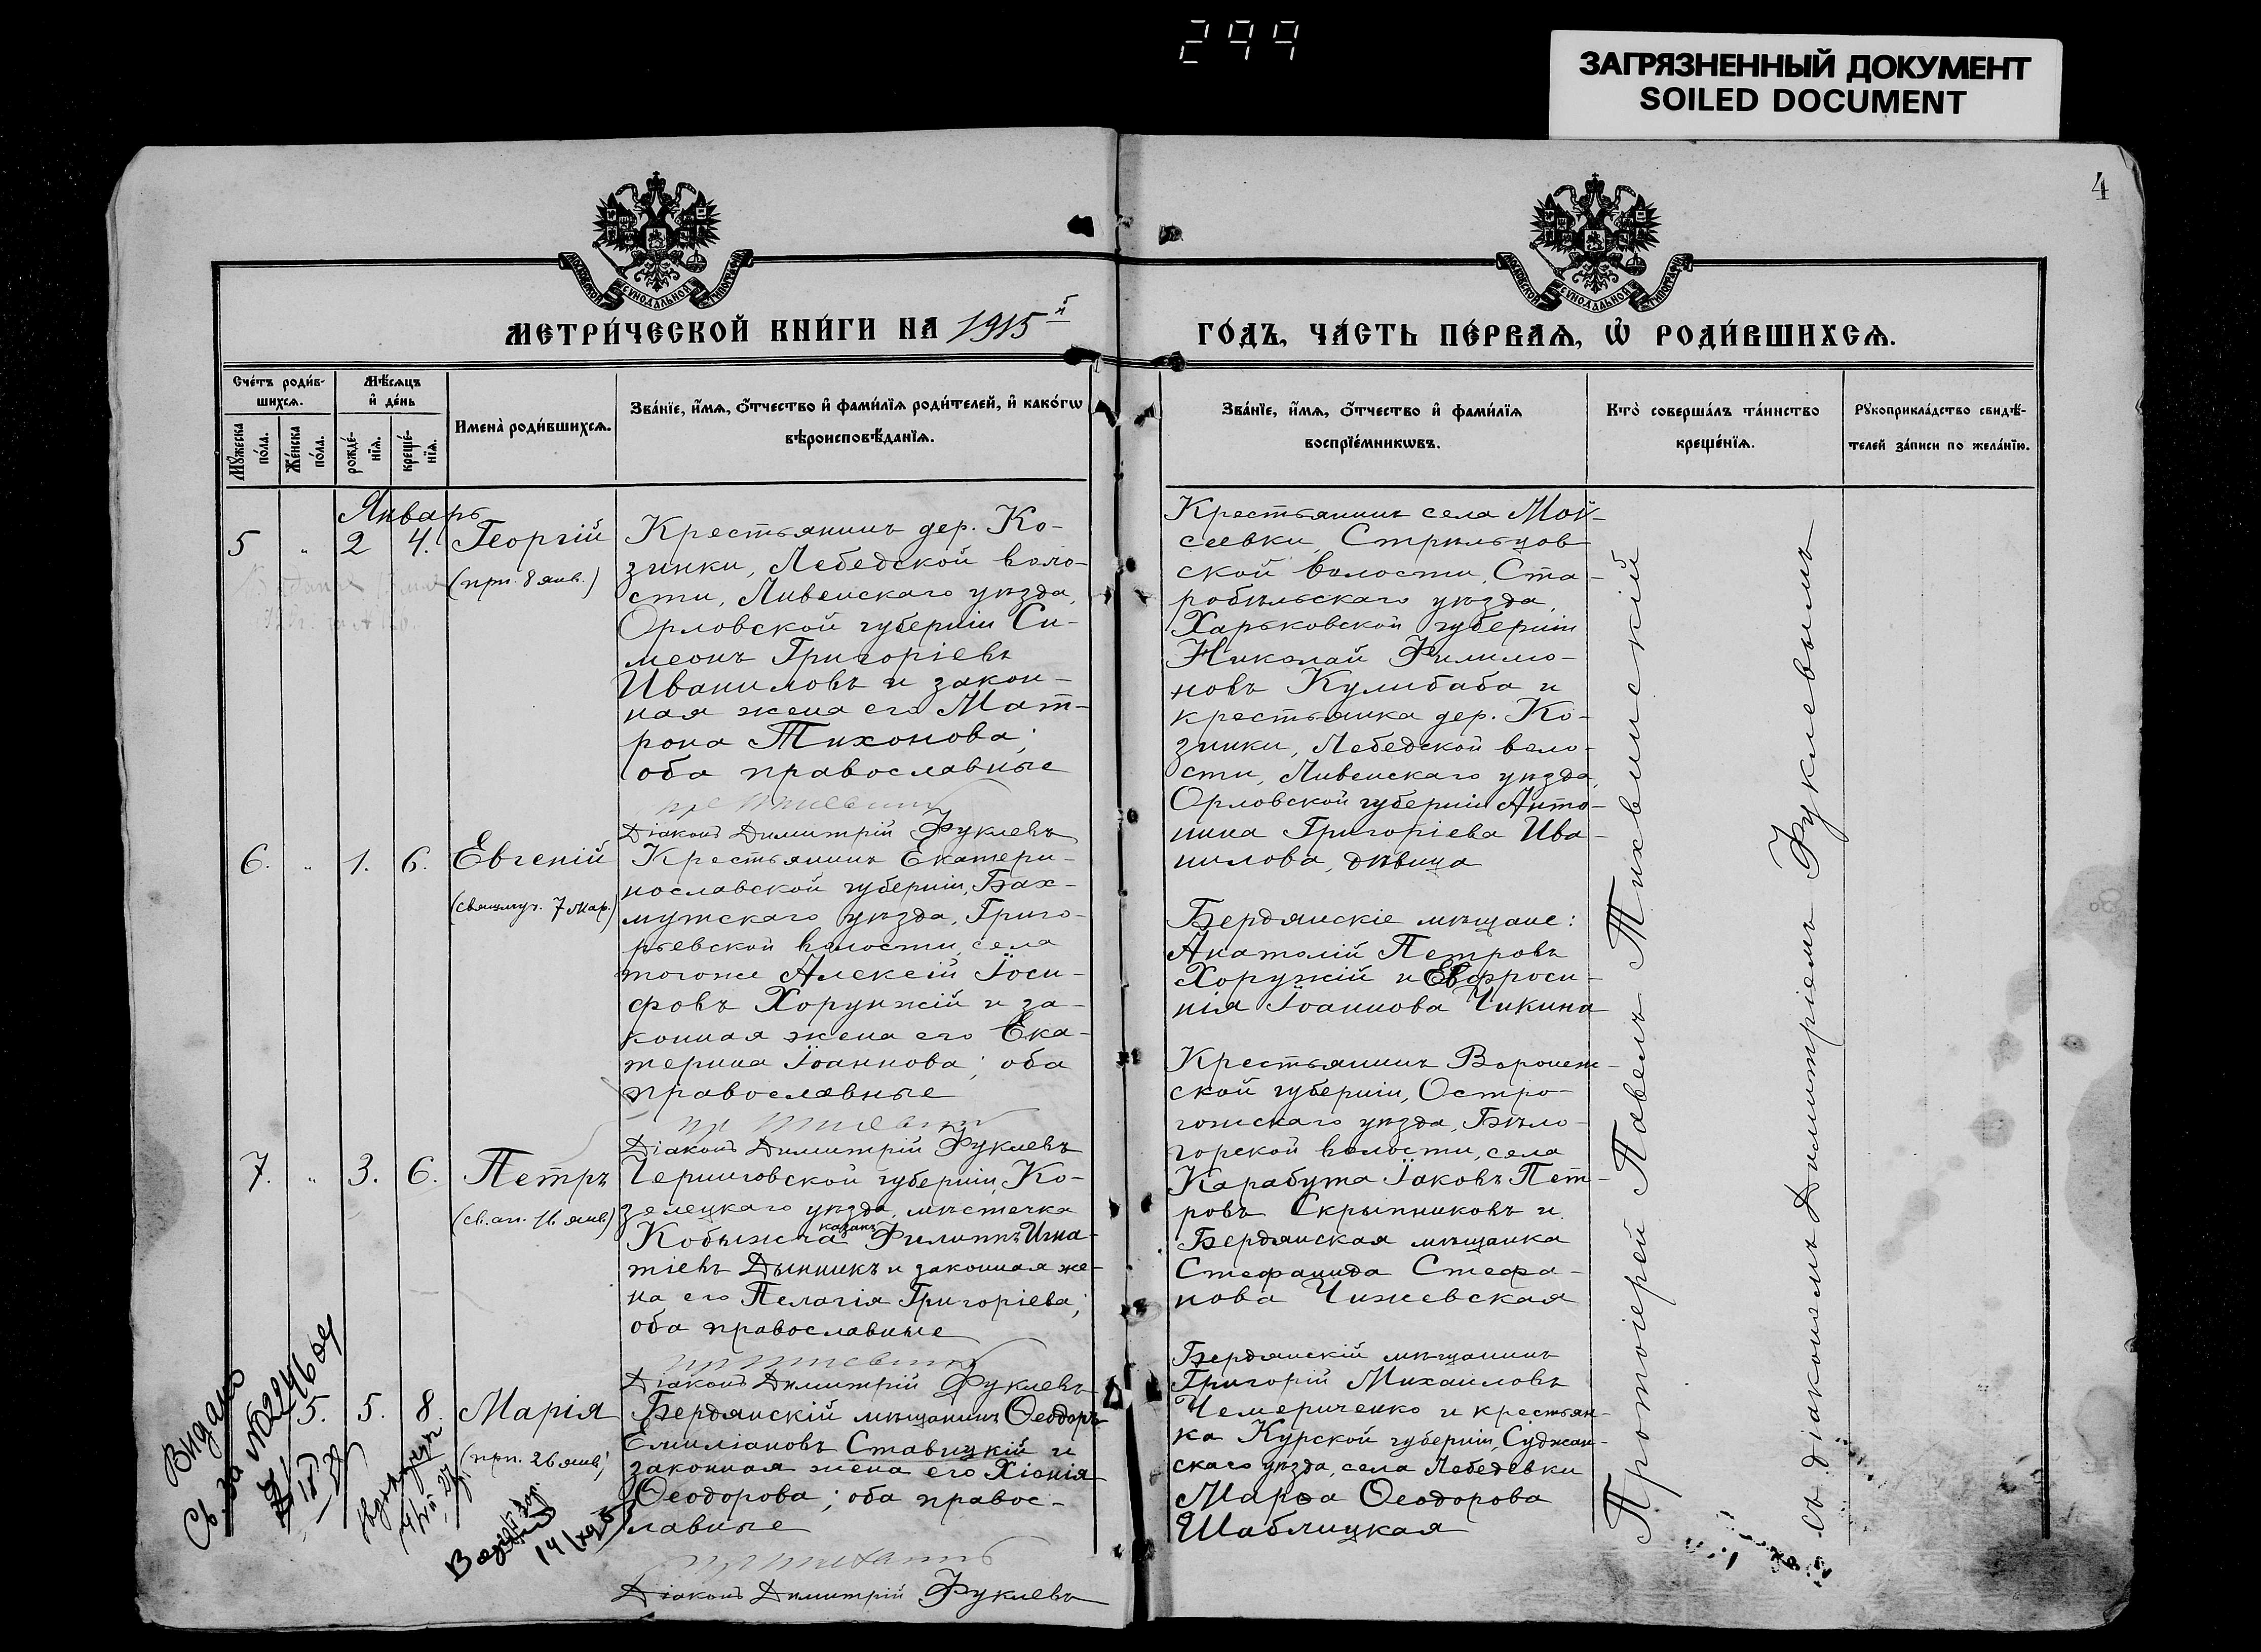 299
ЗАГРЯЗНЕННЫЙ ДОКУМЕНТ
SOILED DOCUMENT
4
МОСКОВСКОЙ СѴНОДАЛЬНОЙ ТИПОГРАФІИ
МОСКОВСКОЙ СѴНОДАЛЬНОЙ ТИПОГРАФІИ
МЕТРИ́ЧЕСКОЙ КНИ́ГИ НА 1915й
ГО́ДЪ, ЧА́СТЬ ПЕ́РВАѦ, Ѡ҆ РОДИ́ВШИХСѦ.
Сче́тъ роди́в-
шихсѧ.
Мѣ́сѧцъ
и҆ де́нь
Мꙋ́жеска
по́ла.
Же́нска
по́ла.
рожде́-
нїѧ.
креще́-
нїѧ.
Имена̀ роди́вшихсѧ.
Зва́нїе, и҆́мѧ, ѻ҆́тчество и҆ фами́лїѧ роди́телей, и҆ како́гѡ
вѣроисповѣ́данїѧ.
Зва́нїе, и҆́мѧ, ѻ҆́тчество и҆ фами́лїѧ
воспрїе́мникѡвъ.
Кто̀ соверша́лъ та́инство
креще́нїѧ.
Рꙋкоприкла́дство свидѣ́-
телей за́писи по жела́нїю.
Январь
5 „ 2 4. Георгій
(прп. 8 янв.)
Крестьянинъ дер. Ко-
зинки, Лебедской воло-
сти, Ливенскаго уѣзда,
Орловской губерніи Си-
меонъ Григоріевъ
Иваниловъ и закон-
ная жена его Мат-
рона Тихонова;
оба православные
Діаконъ Димитрій Фуклевъ
Крестьянинъ села Мой-
сеевки, Стрѣльцов-
ской волости, Ста-
робѣльскаго уѣзда,
Харьковской губерніи
Николай Филимо-
новъ Кулибаба и
крестьянка дер. Ко-
зинки, Лебедской воло-
сти, Ливенскаго уѣзда,
Орловской губерніи Анто-
нина Григоріева Ива-
нилова, дѣвица
6. „ 1. 6. Евгеній
(свящмуч. 7 мар.)
Крестьянинъ Екатери-
нославской губерніи, Бах-
мутскаго уѣзда, Григо-
рьевской волости, села
тогоже Алексій Іоси-
фовъ Хорунжій и за-
конная жена его Ека-
терина Іоаннова; оба
православные
Діаконъ Димитрій Фуклевъ
Бердянскіе мѣщане:
Анатолій Петровъ
Хоружій и Евфроси-
нія Іоаннова Чикина
7. „ 3. 6. Петръ
(св. ап. 16 янв.)
Черниговской губерніи, Ко-
зелецкаго уѣзда, мѣстечка
Кобыжча казакъ Филиппъ Игна-
тіевъ Дынникъ и законная же-
на его Пелагія Григоріева;
оба православные
Діаконъ Димитрій Фуклевъ
Крестьянинъ Воронеж-
ской губерніи, Остро-
гожскаго уѣзда, Бѣло-
горской волости, села
Карабута Іаковъ Пет-
ровъ Скрыпниковъ и
Бердянская мѣщанка
Стефанида Стефа-
нова Чижевская
5. 5. 8. Марія
(прп. 26 янв.)
Бердянскій мѣщанинъ Ѳеодоръ
Емиліановъ Ставицкій и
законная жена его Хіонія
Ѳеодорова; оба правос-
лавные
Діаконъ Димитрій Фуклевъ
Бердянскій мѣщанинъ
Григорій Михаиловъ
Чемериченко и крестьян-
ка Курской губерніи, Суджан-
скаго уѣзда, села Лебедевки
Марѳа Ѳеодорова
Шаблицкая
Протоіерей Павелъ Тихвинскій
съ діакономъ Димитріемъ Фуклевымъ
Видано
Св. за №02246